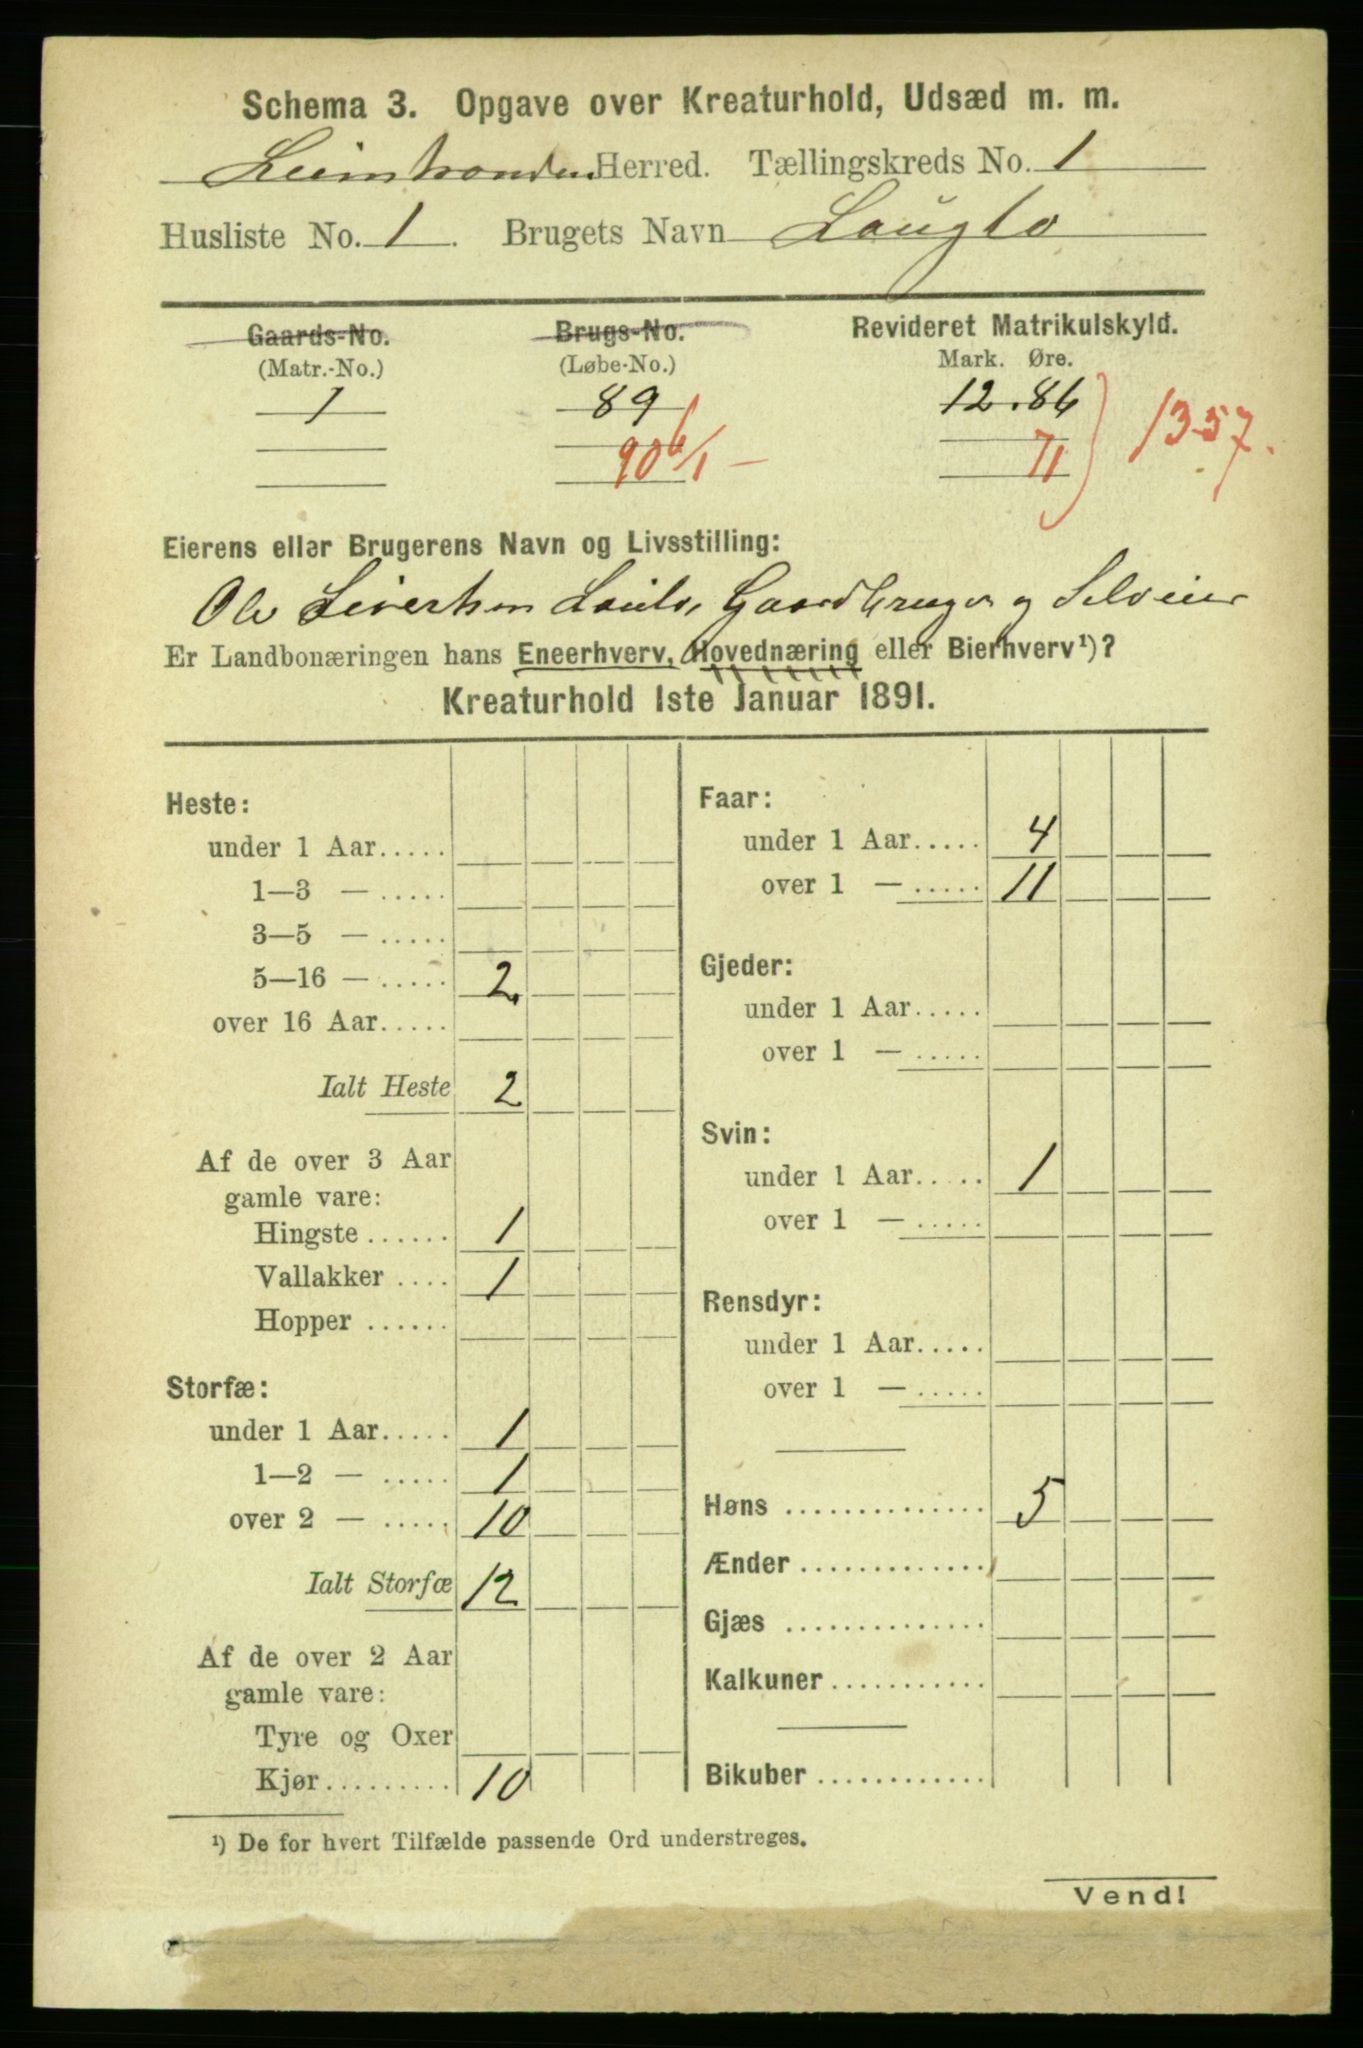 Schema 3. Opgave over Kreaturhold, Udsæd m. m.
Leinstranden Herred. Tællingskreds No. 1
Husliste No. 1. Brugets Navn Lauglo
Gaards-No. Brugs-No. Revideret Matrikulskyld.
(Matr.-No.) (Løbe-No.) Mark. Øre.
1 89 12.86
90 6/1 – 71 13.57.
Eierens eller Brugerens Navn og Livsstilling:
Ole Sivertsen Gaardbruger og Selveier
Er Landbonæringen hans Eneerhverv, Hovednæring eller Bierhverv¹)?
Kreaturhold 1ste Januar 1891.
Heste:
under 1 Aar.....
1—3 — .....
3—5 — .....
5—16 — ..... 2
over 16 Aar.....
Ialt Heste 2
Af de over 3 Aar
gamle vare:
Hingste ...... 1
Vallakker .... 1
Hopper ......
Storfæ:
under 1 Aar..... 1
1—2 — ..... 1
over 2 — ..... 10
Ialt Storfæ 12
Af de over 2 Aar
gamle vare:
Tyre og Oxer
Kjør......... 10
Faar:
under 1 Aar..... 4
over 1 — ..... 11
Gjeder:
under 1 Aar.....
over 1 — .....
Svin:
under 1 Aar..... 1
over 1 — .....
Rensdyr:
under 1 Aar.....
over 1 — .....
Høns .............. 5
Ænder .............
Gjæs ..............
Kalkuner ...........
Bikuber ............
¹) De for hvert Tilfælde passende Ord understreges.
Vend!